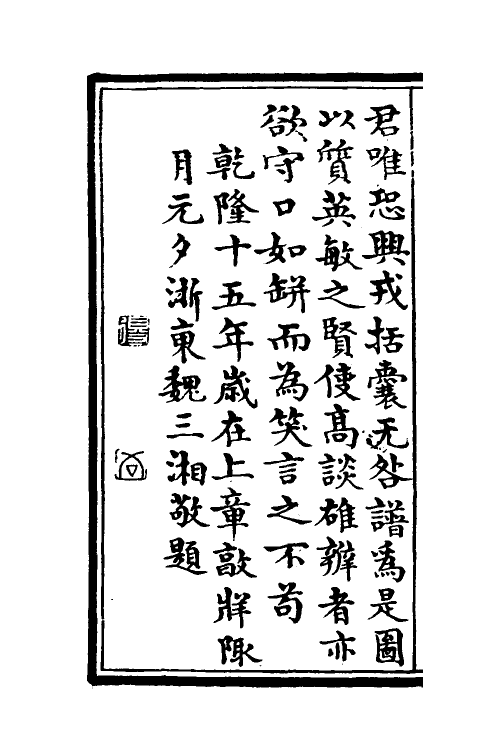 君唯恐興戎括囊无咎譜為是圖
以質英敏之賢使高談雄辨者亦
欲守口如缾而為笑言之不苟
乾隆十五年歲在上章敦牂陬
月元夕浙東魏三湘敬題